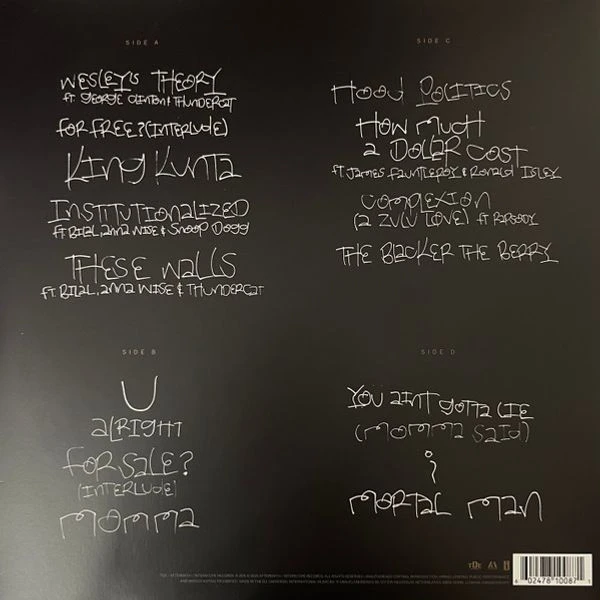 SIDE A
WESLEYS THEORY
FT GEORGE CLINTON & THUNDERCAT
FOR FREE? (INTERLUDE)
KING KUNTA
INSTITUTIONALIZED
FT BILAL, ANNA WISE & SNOOP DOGG
THESE WALLS
FT. BILAL, ANNA WISE & THUNDERCAT
SIDE B
U
ALRIGHT
FOR SALE?
(INTERLUDE)
MOMMA
SIDE C
HOOD POLITICS
HOW MUCH
A DOLLAR COST
FT. JAMES FAUNTLEROY & RONALD ISLEY
COMPLEXION
(A ZULU LOVE) FT RAPSODY
THE BLACKER THE BERRY
SIDE D
YOU AINT GOTTA LIE
(MOMMA SAID)
i
MORTAL MAN
TDE
6 02478 10087 1